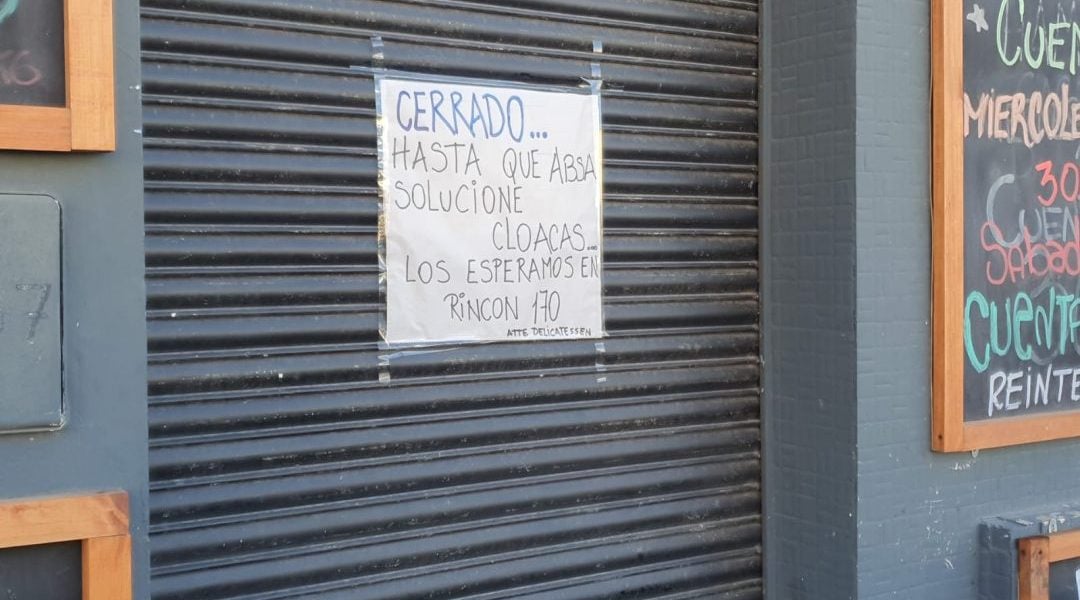 CERRADO...
HASTA QUE ABSA
SOLUCIONE
CLOACAS...
LOS ESPERAMOS EN
RINCON 170
ATTE DELICATESSEN
MIERCOLE
30
CUEN
SABAD
CUENTA
REINTE